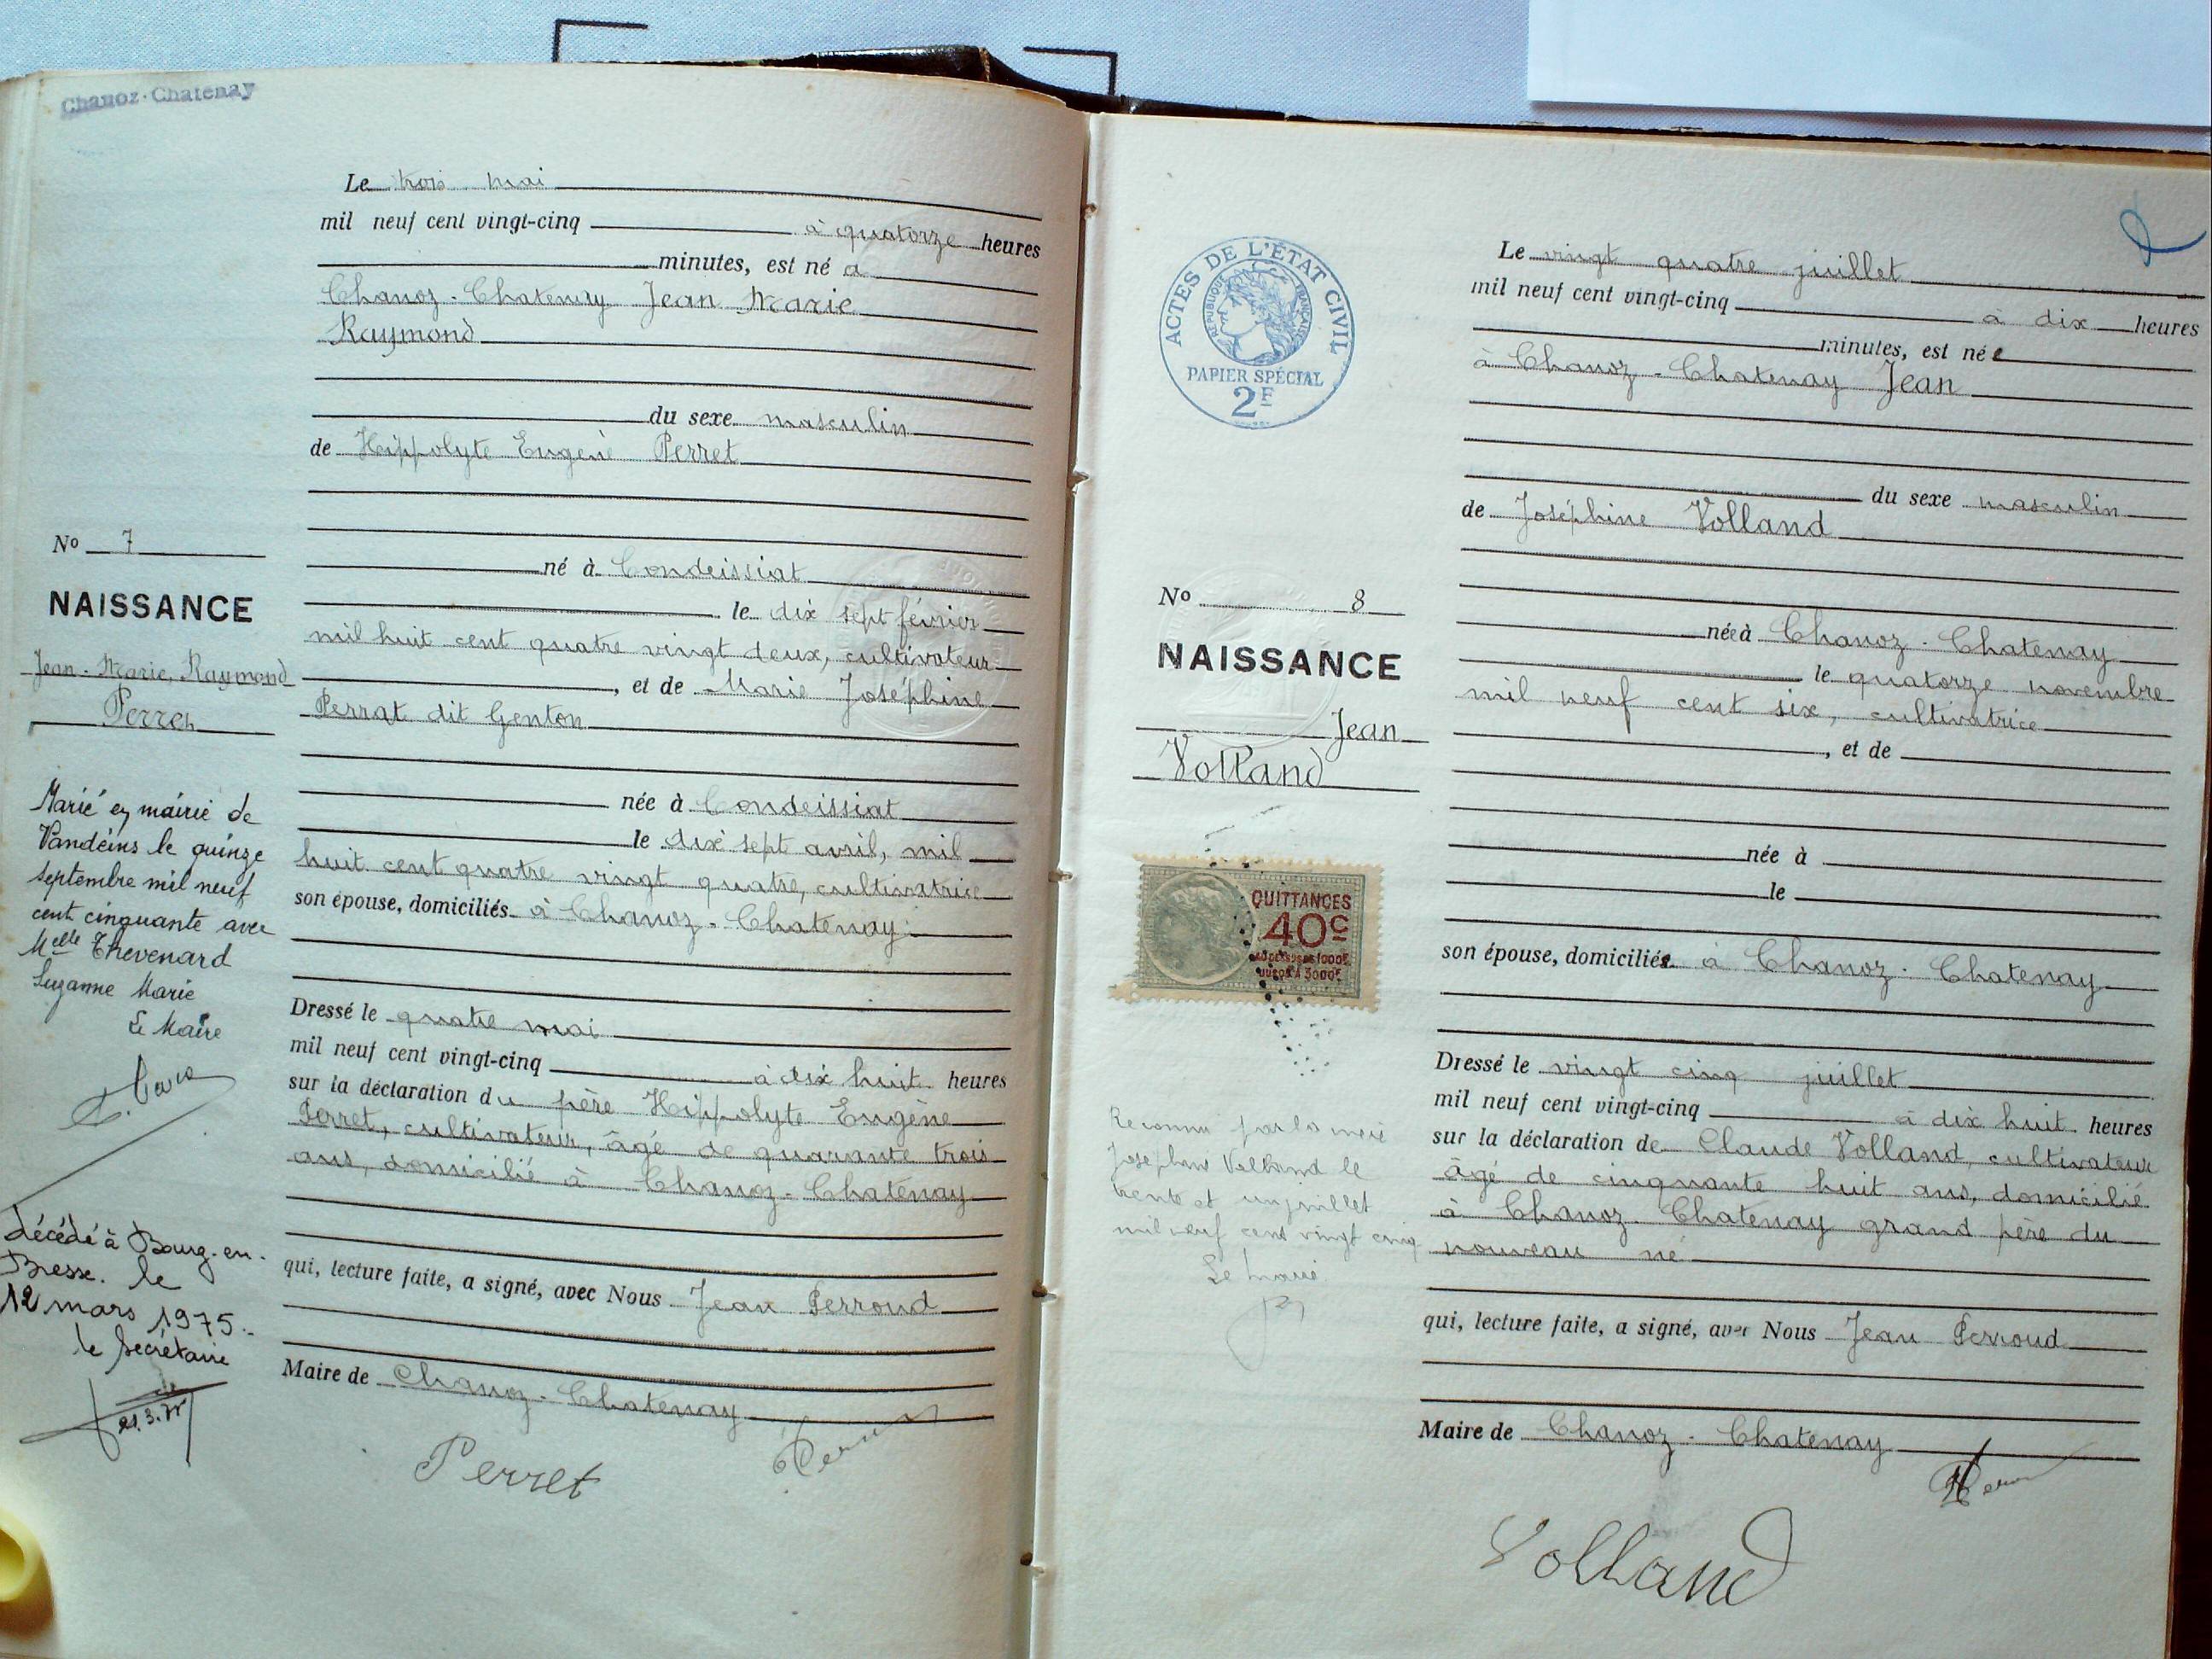 Chanoz-Chatenay
Le trois mai
mil neuf cent vingt-cinq à quatorze heures
minutes, est né a
Chanoz-Chatenay Jean Marie
Raymond
du sexe masculin
de Hippolyte Eugène Perret
né à Condeissiat
le dix sept février
mil huit cent quatre vingt deux, cultivateur
, et de Marie Joséphine
Perrat dit Genton
née à Condeissiat
le dix sept avril, mil
huit cent quatre vingt quatre, cultivatrice
son épouse, domiciliés à Chanoz-Chatenay
Dressé le quatre mai
mil neuf cent vingt-cinq à dix huit heures
sur la déclaration du père Hippolyte Eugène
Perret, cultivateur, âgé de quarante trois
ans, domicilié à Chanoz-Chatenay
qui, lecture faite, a signé, avec Nous Jean Perroud
Maire de Chanoz-Chatenay
Perret
No 7
NAISSANCE
Jean-Marie, Raymond
Perret
Marié en mairie de
Vandeins le quinze
septembre mil neuf
cent cinquante avec
Melle Thevenard
Suzanne Marie
Le Maire
décédé à Bourg-en-
Bresse. le
12 mars 1975.
le Secrétaire
21.3.75
ACTES DE L'ÉTAT CIVIL
RÉPUBLIQUE FRANÇAISE
PAPIER SPÉCIAL
2F
No 8
NAISSANCE
Jean
Volland
QUITTANCES
40c
AU DESSUS DE 1000F
JUSQU'À 3000F
Reconnu par la mère
Joséphine Volland le
trente et un juillet
mil neuf cent vingt cinq
Le maire
Le vingt quatre juillet
mil neuf cent vingt-cinq à dix heures
minutes, est né
à Chanoz-Chatenay Jean
du sexe masculin
de Joséphine Volland
née à Chanoz-Chatenay
le quatorze novembre
mil neuf cent six, cultivatrice
, et de
née à
le
son épouse, domiciliée à Chanoz-Chatenay
Dressé le vingt cinq juillet
mil neuf cent vingt-cinq à dix huit heures
sur la déclaration de Claude Volland, cultivateur
âgé de cinquante huit ans, domicilié
à Chanoz-Chatenay grand père du
nouveau né
qui, lecture faite, a signé, avec Nous Jean Perroud
Maire de Chanoz-Chatenay
Volland